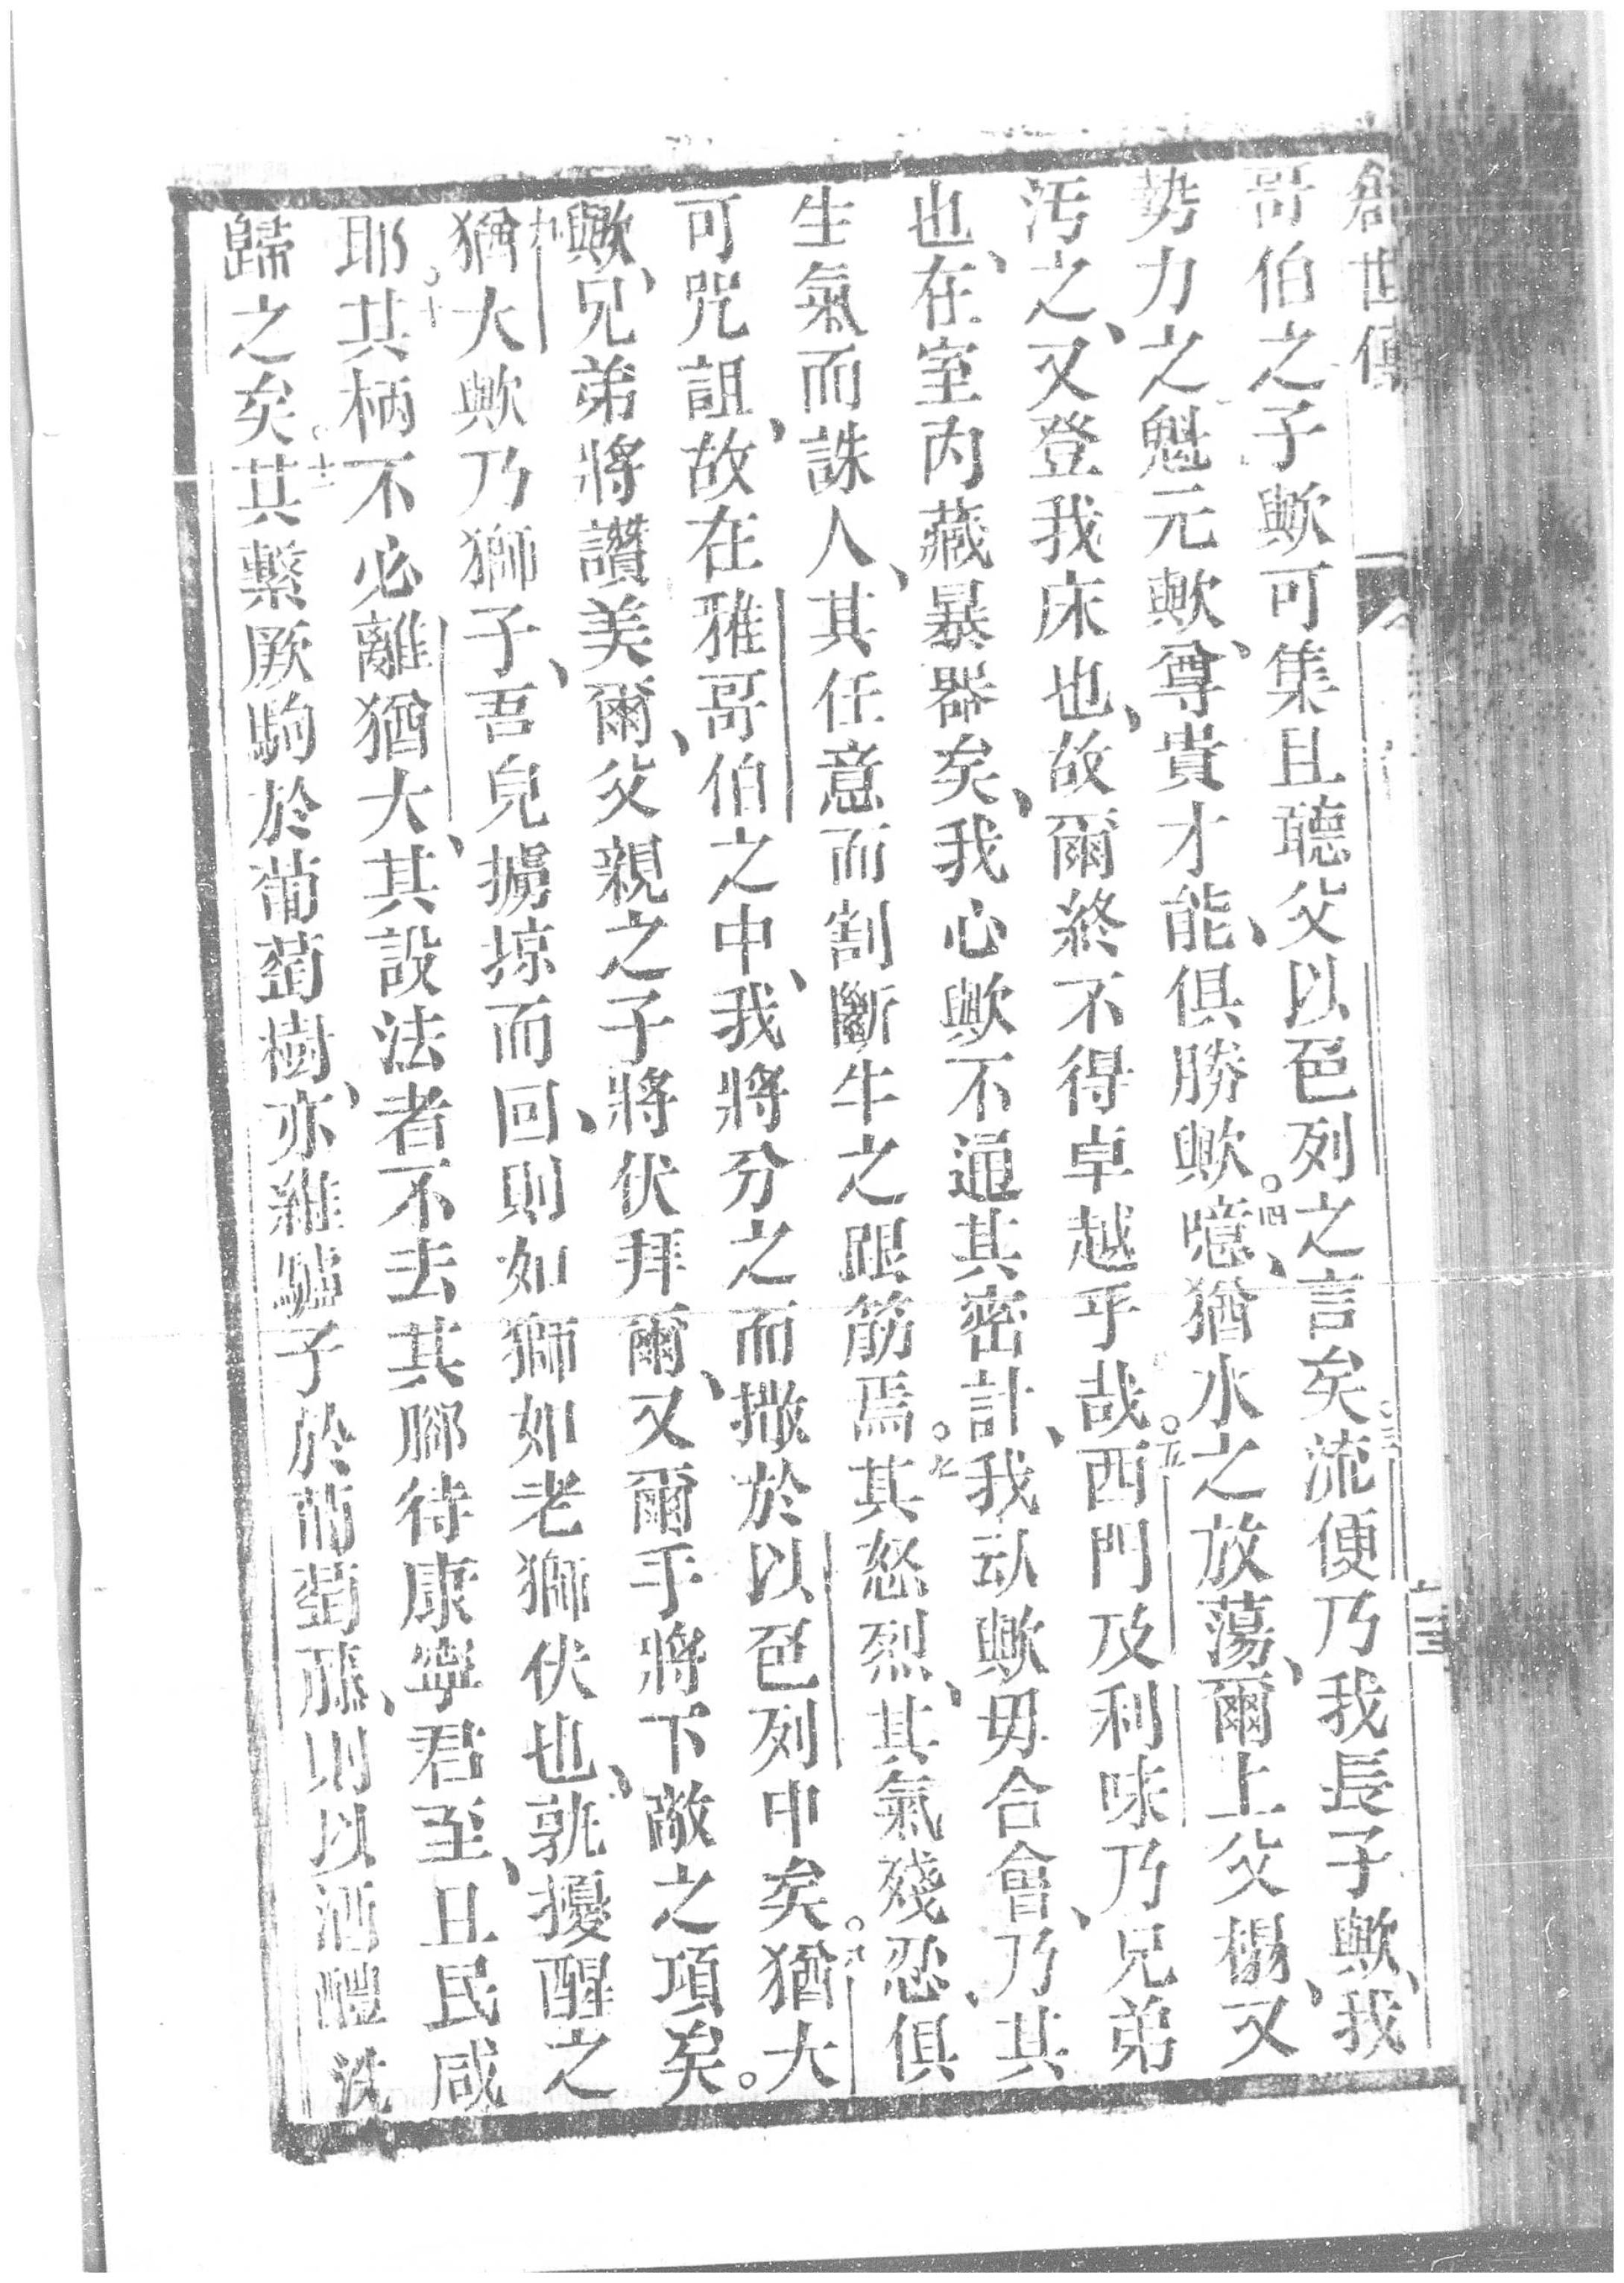 創世傳
哥伯之子歟可集且聽父以色列之言矣。三流便乃我長子歟、我
勢力之魁元歟、尊貴才能、俱勝歟。四噫、猶水之放蕩、爾上父榻、又
污之、又登我床也、故爾終不得卓越乎哉。五西門及利味乃兄弟
也、在室內藏暴器矣、我心歟不通其密計、我歟毋合會、乃其
生氣而誅人、其任意而割斷牛之跟筋焉。七其怒烈、其氣殘忍、俱
可咒詛、故在雅哥伯之中、我將分之而撒於以色列中矣。八猶大
歟、兄弟將讚美爾、父親之子將伏拜爾、又爾手將下敵之項矣。
九猶大歟乃獅子、吾兒擄掠而回、則如獅如老獅伏也、孰擾醒之
耶。十其柄不必離猶大、其設法者不去其腳待康寧君至、且民咸
歸之矣。十一其繫厥駒於葡萄樹、亦雜驢子於葡萄藤、則以酒醴洗